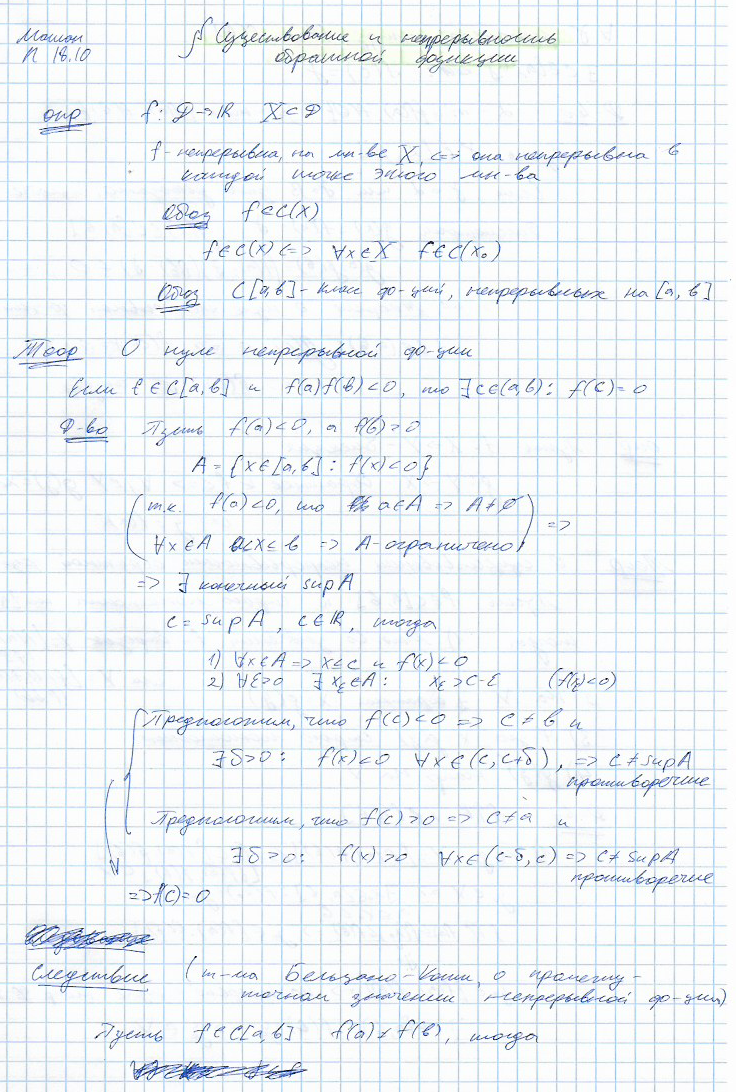 Матан
П 18.10
∮ Существование и непрерывность
обратной функции
опр f: D→ℝ X⊂D
f - непрерывна, на мн-ве X, <=> она непрерывна в
каждой точке этого мн-ва
Обоз f∈C(X)
f∈C(X) <=> ∀x∈X f∈C(x₀)
Обоз C[a,b] - класс ф-ций, непрерывных на [a,b]
Теор О нуле непрерывной ф-ции
Если f∈C[a,b] и f(a)f(b)<0, то ∃c∈(a,b): f(c)=0
Д-во Пусть f(a)<0, а f(b)>0
A = {x∈[a,b] : f(x)<0}
(т.к. f(a)<0, то a∈A => A≠∅
∀x∈A a≤x≤b => A-ограничено) =>
=> ∃ конечный sup A
c = sup A, c∈ℝ, тогда
1) ∀x∈A => x≤c и f(x)<0
2) ∀ε>0 ∃ x_ε∈A : x_ε>c-ε (f(x_ε)<0)
Предположим, что f(c)<0 => c≠b и
∃δ>0: f(x)<0 ∀x∈(c, c+δ), => c≠supA
противоречие
Предположим, что f(c)>0 => c≠a и
∃δ>0: f(x)>0 ∀x∈(c-δ, c) => c≠supA
противоречие
=> f(c)=0
Следствие (т-ма Больцано-Коши, о промежу-
точном значении непрерывной ф-ции)
Пусть f∈C[a,b] f(a)≠f(b), тогда